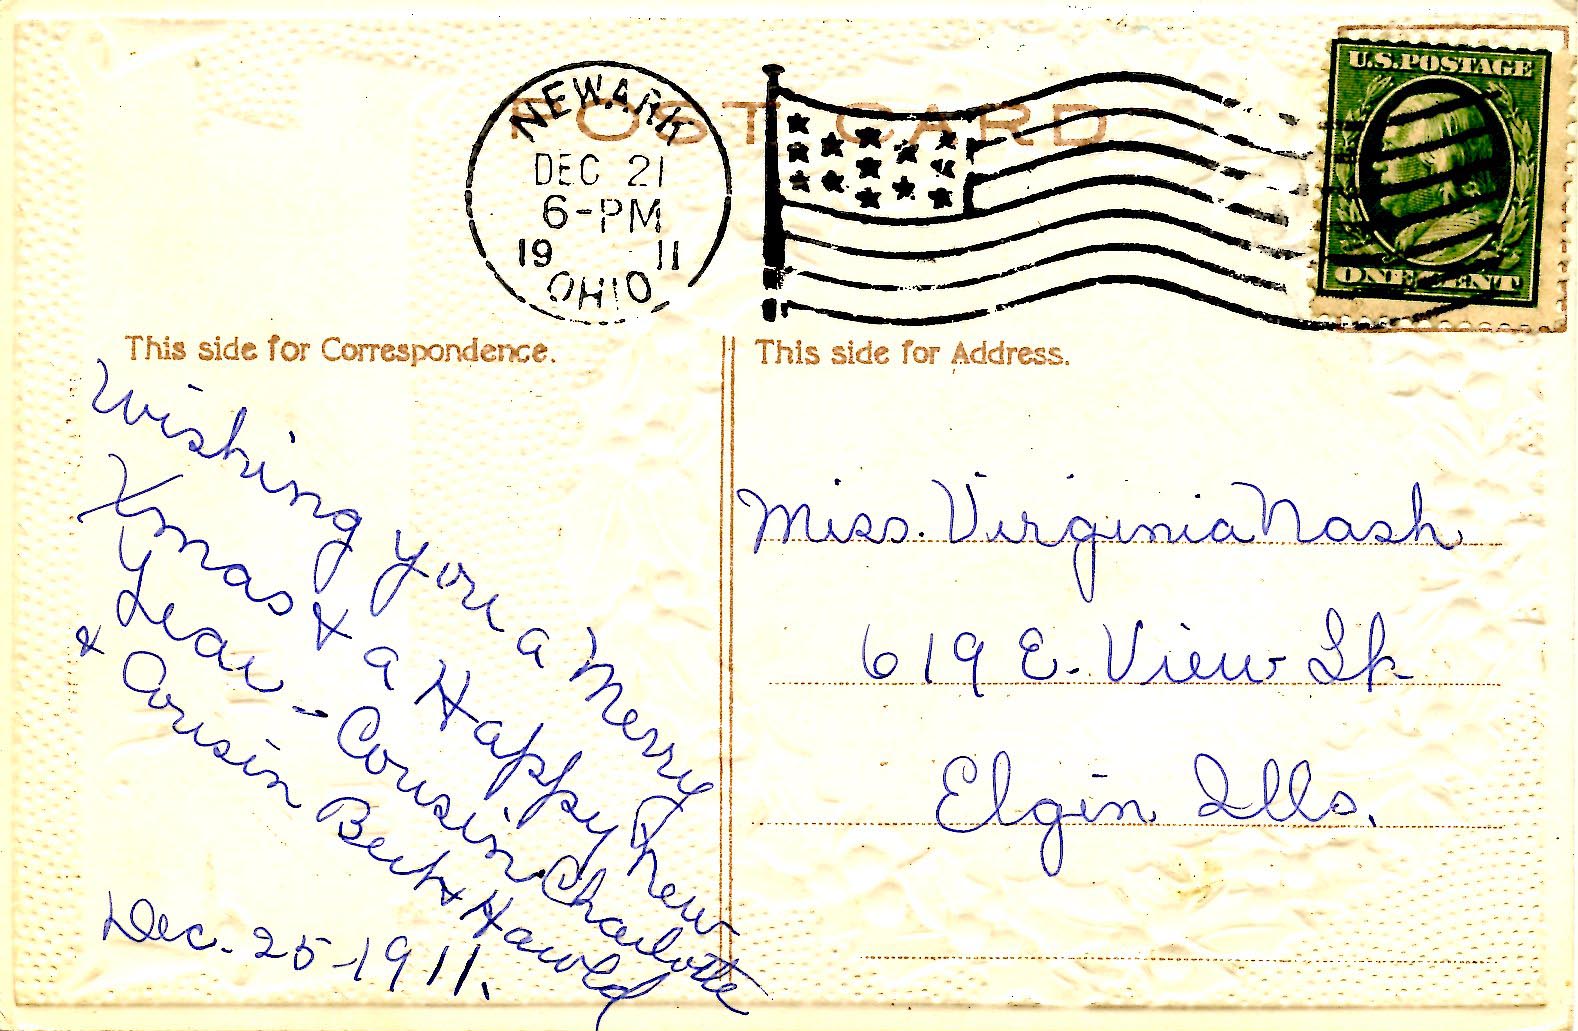 POST CARD
NEWARK
DEC 21
6-PM
19 11
OHIO
U.S. POSTAGE
ONE CENT
This side for Correspondence.
Wishing you a Merry
Xmas & a Happy New
Year - Cousin Charlotte
& Cousin Bert & Harold
Dec. 25-1911.
This side for Address.
Miss. Virginia Nash
619 E. View St.
Elgin Ills.